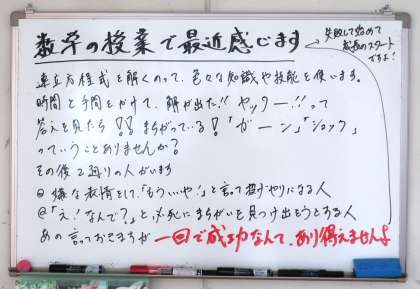 数学の授業で最近感じます
失敗して始めて
成長のスタート
ですよ!
連立方程式を解くのって、色々な知識や技能を使います。
時間と手間をかけて、解が出た!! ヤッター!!って
答えを見たら!?まちがっている!「ガーン」「ショック」
っていうことありませんか?
その後2通りの人がいます
①嫌な表情をして、「もういいや!」と言って投げやりになる人
②「え!なんで?」と必死にまちがいを見つけ出そうとする人
あの言っておきますが 一回で成功なんて、あり得えませんよ